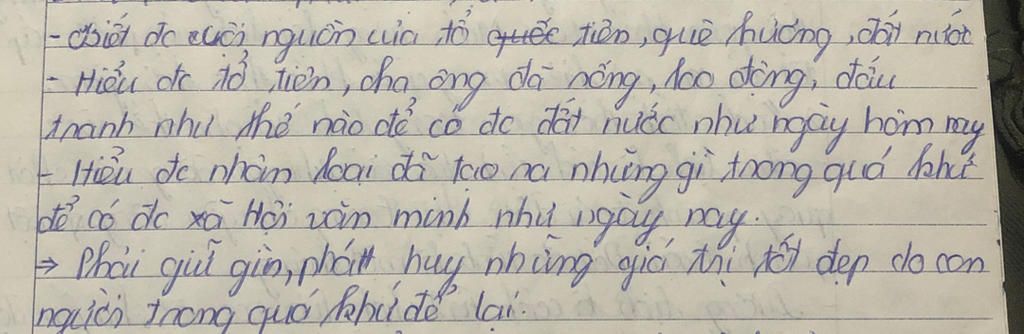 - Biết đc cội nguồn của tổ quốc tiên, quê hương, đất nước
- Hiểu đc tổ tiên, cha ông đã sống, lao động, đấu
tranh như thế nào để có đc đất nước như ngày hôm nay
- Hiểu đc nhân loại đã tạo ra những gì trong quá khứ
để có đc xã Hội văn minh như ngày nay.
→ Phải giữ gìn, phát huy những giá trị tốt đẹp do con
người trong quá khứ để lại.